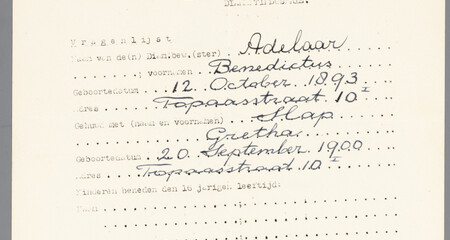 Vragenlijst
Naam van de(n) Diam.bew.(ster) Adelaar
; voornamen Benedictus
Geboortedatum 12 October 1893
Adres Topaasstraat 10 I
Gehuwd met (naam en voornamen) Slap
Gretha
Geboortedatum 20 September 1900
Adres Topaasstraat 10 I
Kinderen beneden den 16 jarigen leeftijd:
Naam